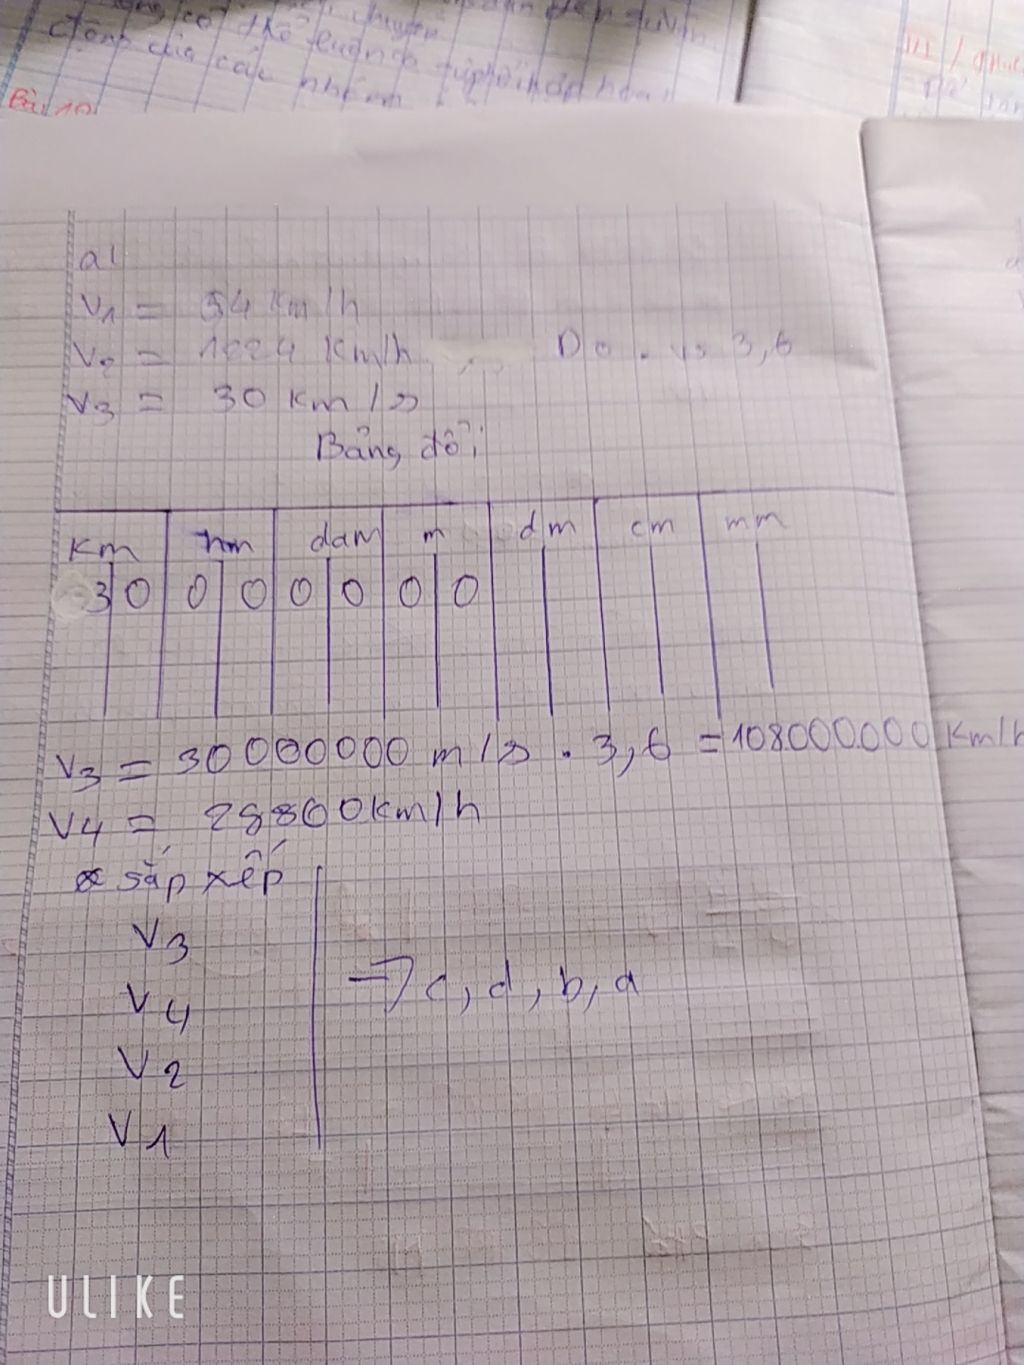 Bài 10
a/
V1 = 54 km/h
V2 = 1624 Km/h Do . vs 3,6
V3 = 30 km/s
Bảng đổi
Km hm dam m dm cm mm
3 0 0 0 0 0 0 0
V3 = 30000000 m/s . 3,6 = 108000.000 Km/h
V4 = 28800km/h
* sắp xếp
V3
V4
=> c, d, b, a
V2
V1
ULIKE